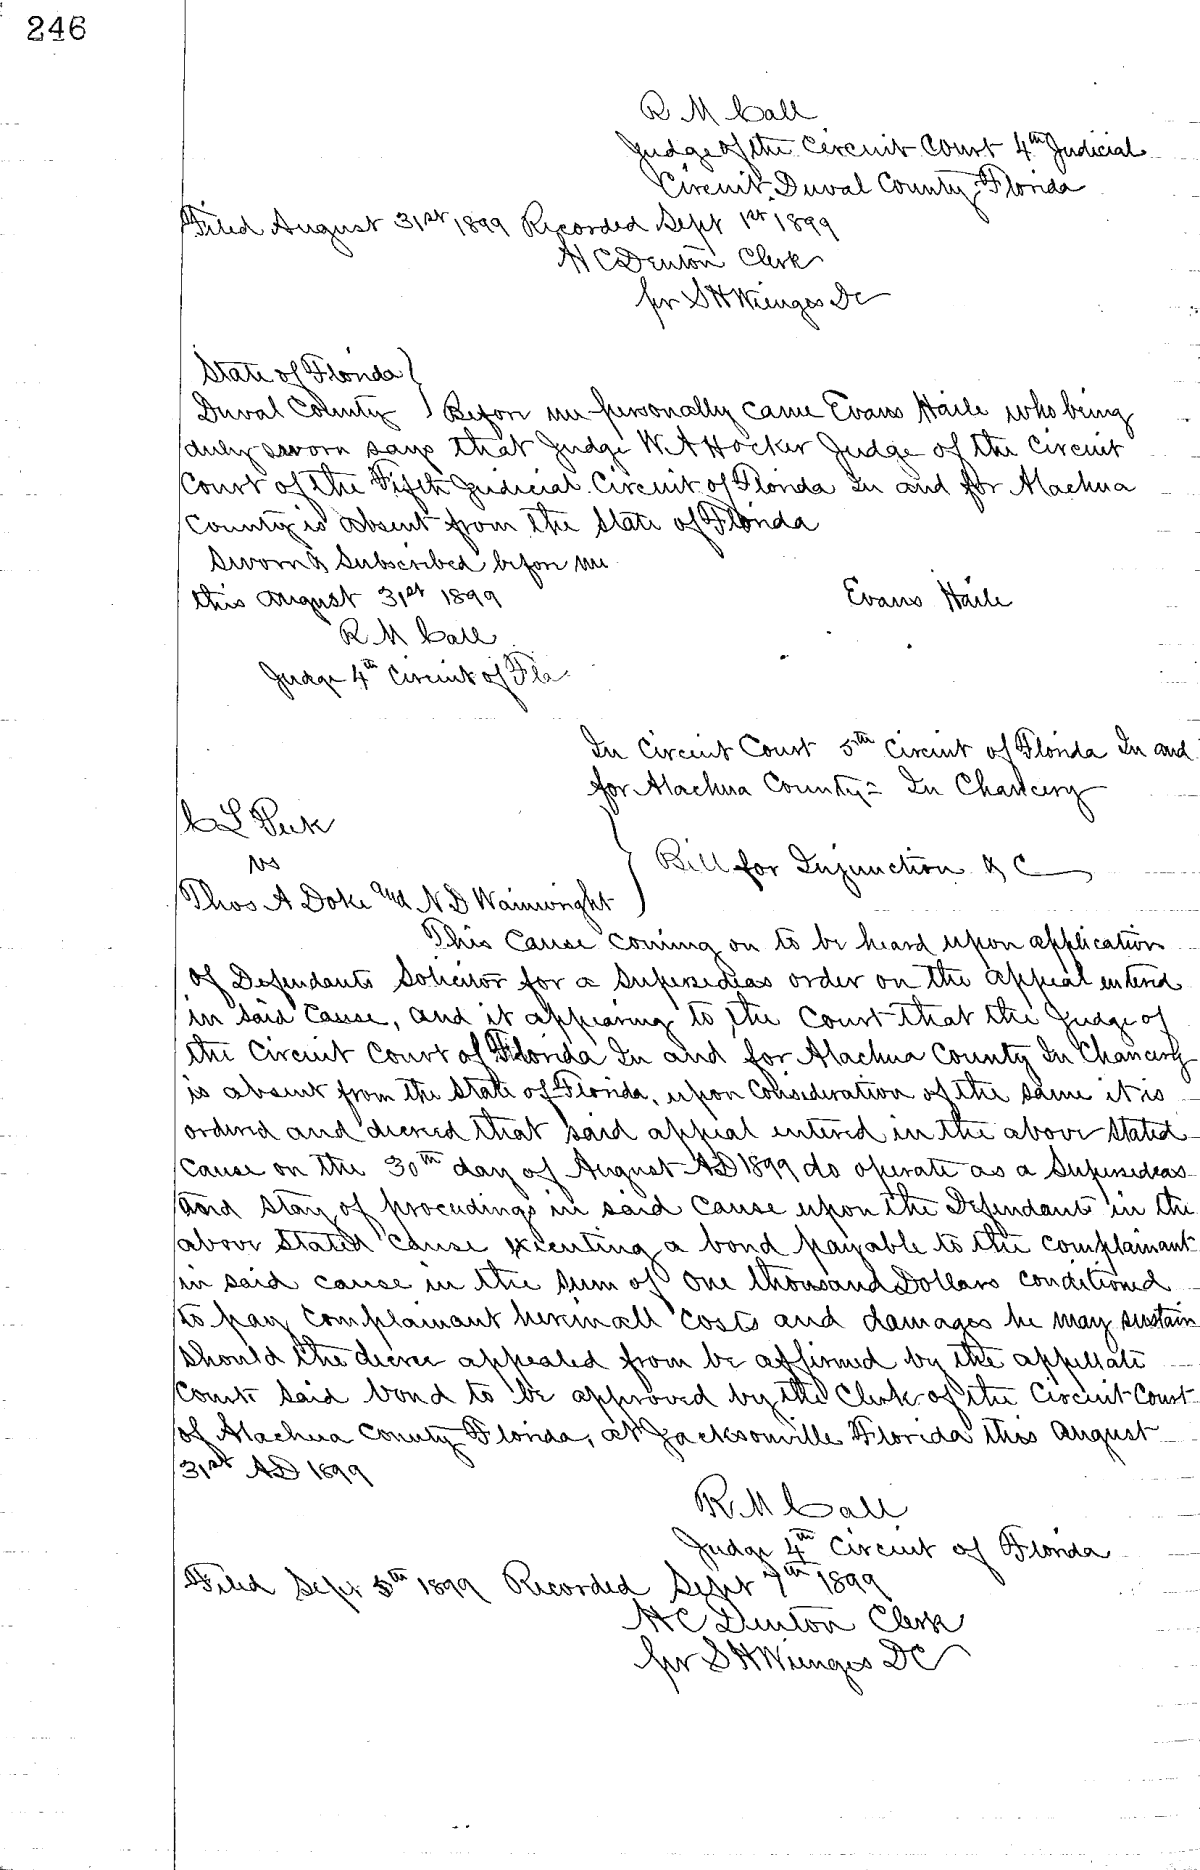 246
R M Call
Judge of the Circuit Court 4th Judicial
Circuit, Duval County Florida
Filed August 31st 1899 Recorded Sept 1st 1899
H C Denton Clerk
per S H Wienges DC
State of Florida }
Duval County } Before me personally came Evans Haile who being
duly sworn says that Judge W. A Hocker Judge of the Circuit
Court of the Fifth Judicial Circuit of Florida In and for Alachua
County is absent from the State of Florida
Sworn & Subscribed before me
this August 31st 1899 Evans Haile
R M Call
Judge 4th Circuit of Fla
In Circuit Court 5th Circuit of Florida In and
for Alachua County = In Chancery
C L Peek
vs } Bill for Injunction & C
Thos A Doke and N D Wainwright
This Cause coming on to be heard upon application
of Defendants Solicitor for a Supersedeas order on the appeal entered
in said Cause, and it appearing to the Court that the Judge of
the Circuit Court of Florida In and for Alachua County In Chancery
is absent from the State of Florida, upon Consideration of the same it is
ordered and decreed that said appeal entered in the above stated
Cause on the 30th day of August AD 1899 do operate as a Supersedeas
and stay of proceedings in said Cause upon the Defendants in the
above stated cause executing a bond payable to the complainant
in said cause in the sum of One thousand Dollars conditioned
to pay complainant herein all costs and damages he may sustain
should the decree appealed from be affirmed by the appellate
Court said bond to be approved by the Clerk of the Circuit Court
of Alachua County Florida, at Jacksonville Florida this August
31st AD 1899
R M Call
Judge 4th Circuit of Florida
Filed Sept 5th 1899 Recorded Sept 7th 1899
H C Denton Clerk
per S H Wienges DC